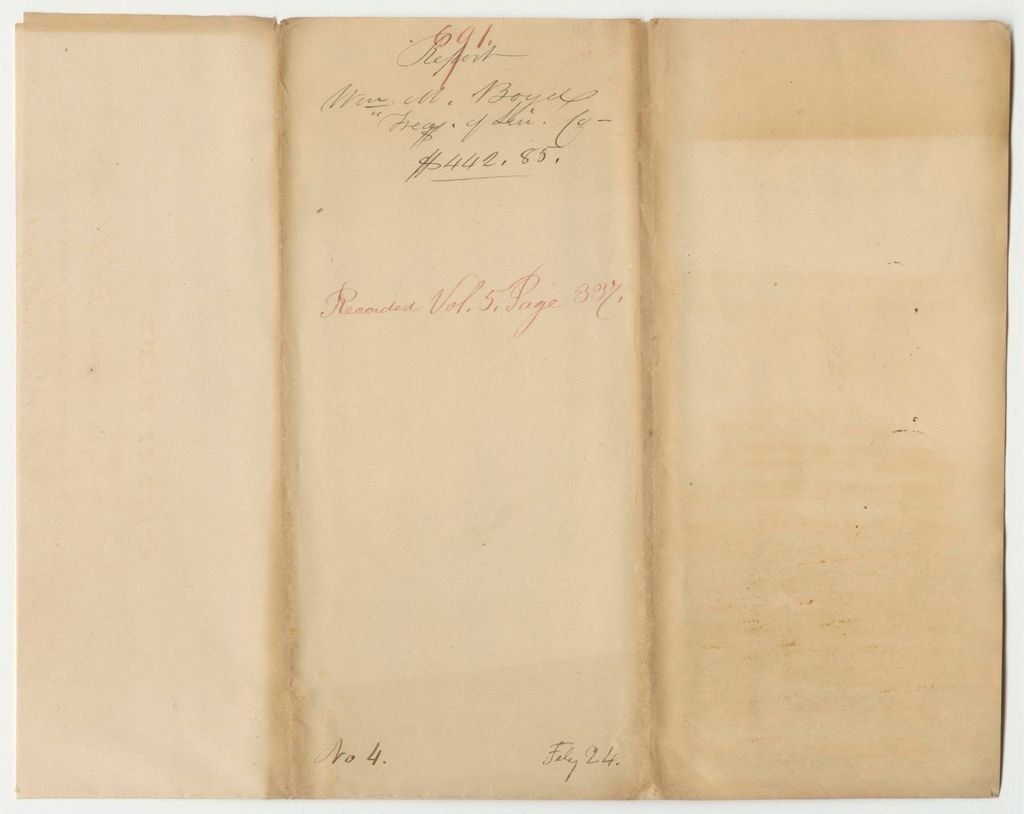 691.
Report
Wm. M. Boyd
Treas. of Lin. Co-
$442.85.
Recorded Vol. 5. Page 337.
No 4.
Feby 24.